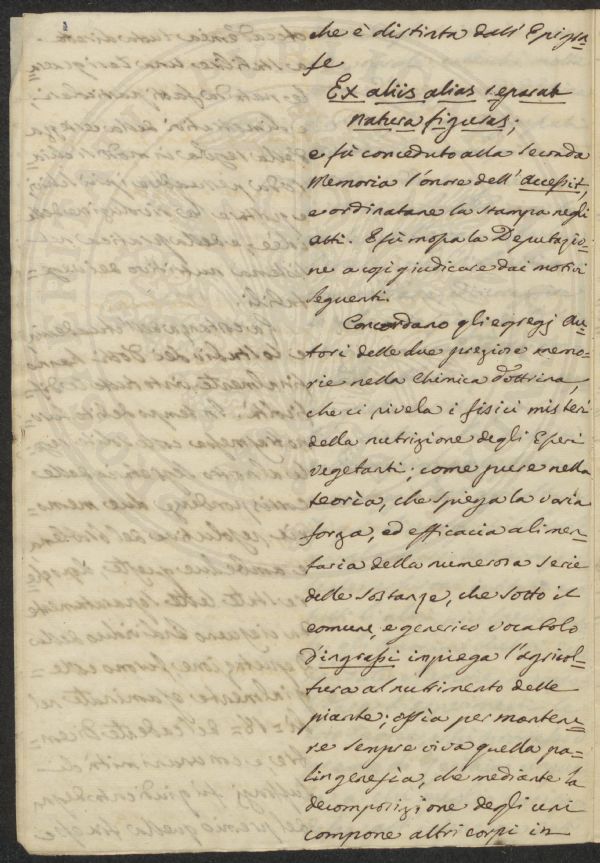 che è distinta dall' Epigra=
fe
Ex aliis alias reparat
natura figuras;
e fù conceduto alla seconda
Memoria l'onore dell' accessit,
e ordinatane la stampa negli
atti. E fù mossa la Deputazio=
ne a così giudicare dai motivi
seguenti.
Concordano gli egregj Au=
tori delle due preziose memo=
rie nella Chimica dottrina,
che ci rivela i fisici misterj
della nutrizione degli Esseri
vegetanti; come pure nella
teoria, che spiega la varia
forza, ed efficacia alimen=
taria della numerosa serie
delle sostanze, che sotto il
comune, e generico vocabolo
d'ingrassi impiega l'agricol=
tura al nutrimento delle
piante; ossia per mantene=
re sempre viva quella pa=
lingenesìa, che mediante la
decomposizione degli uni
compone altri corpi in